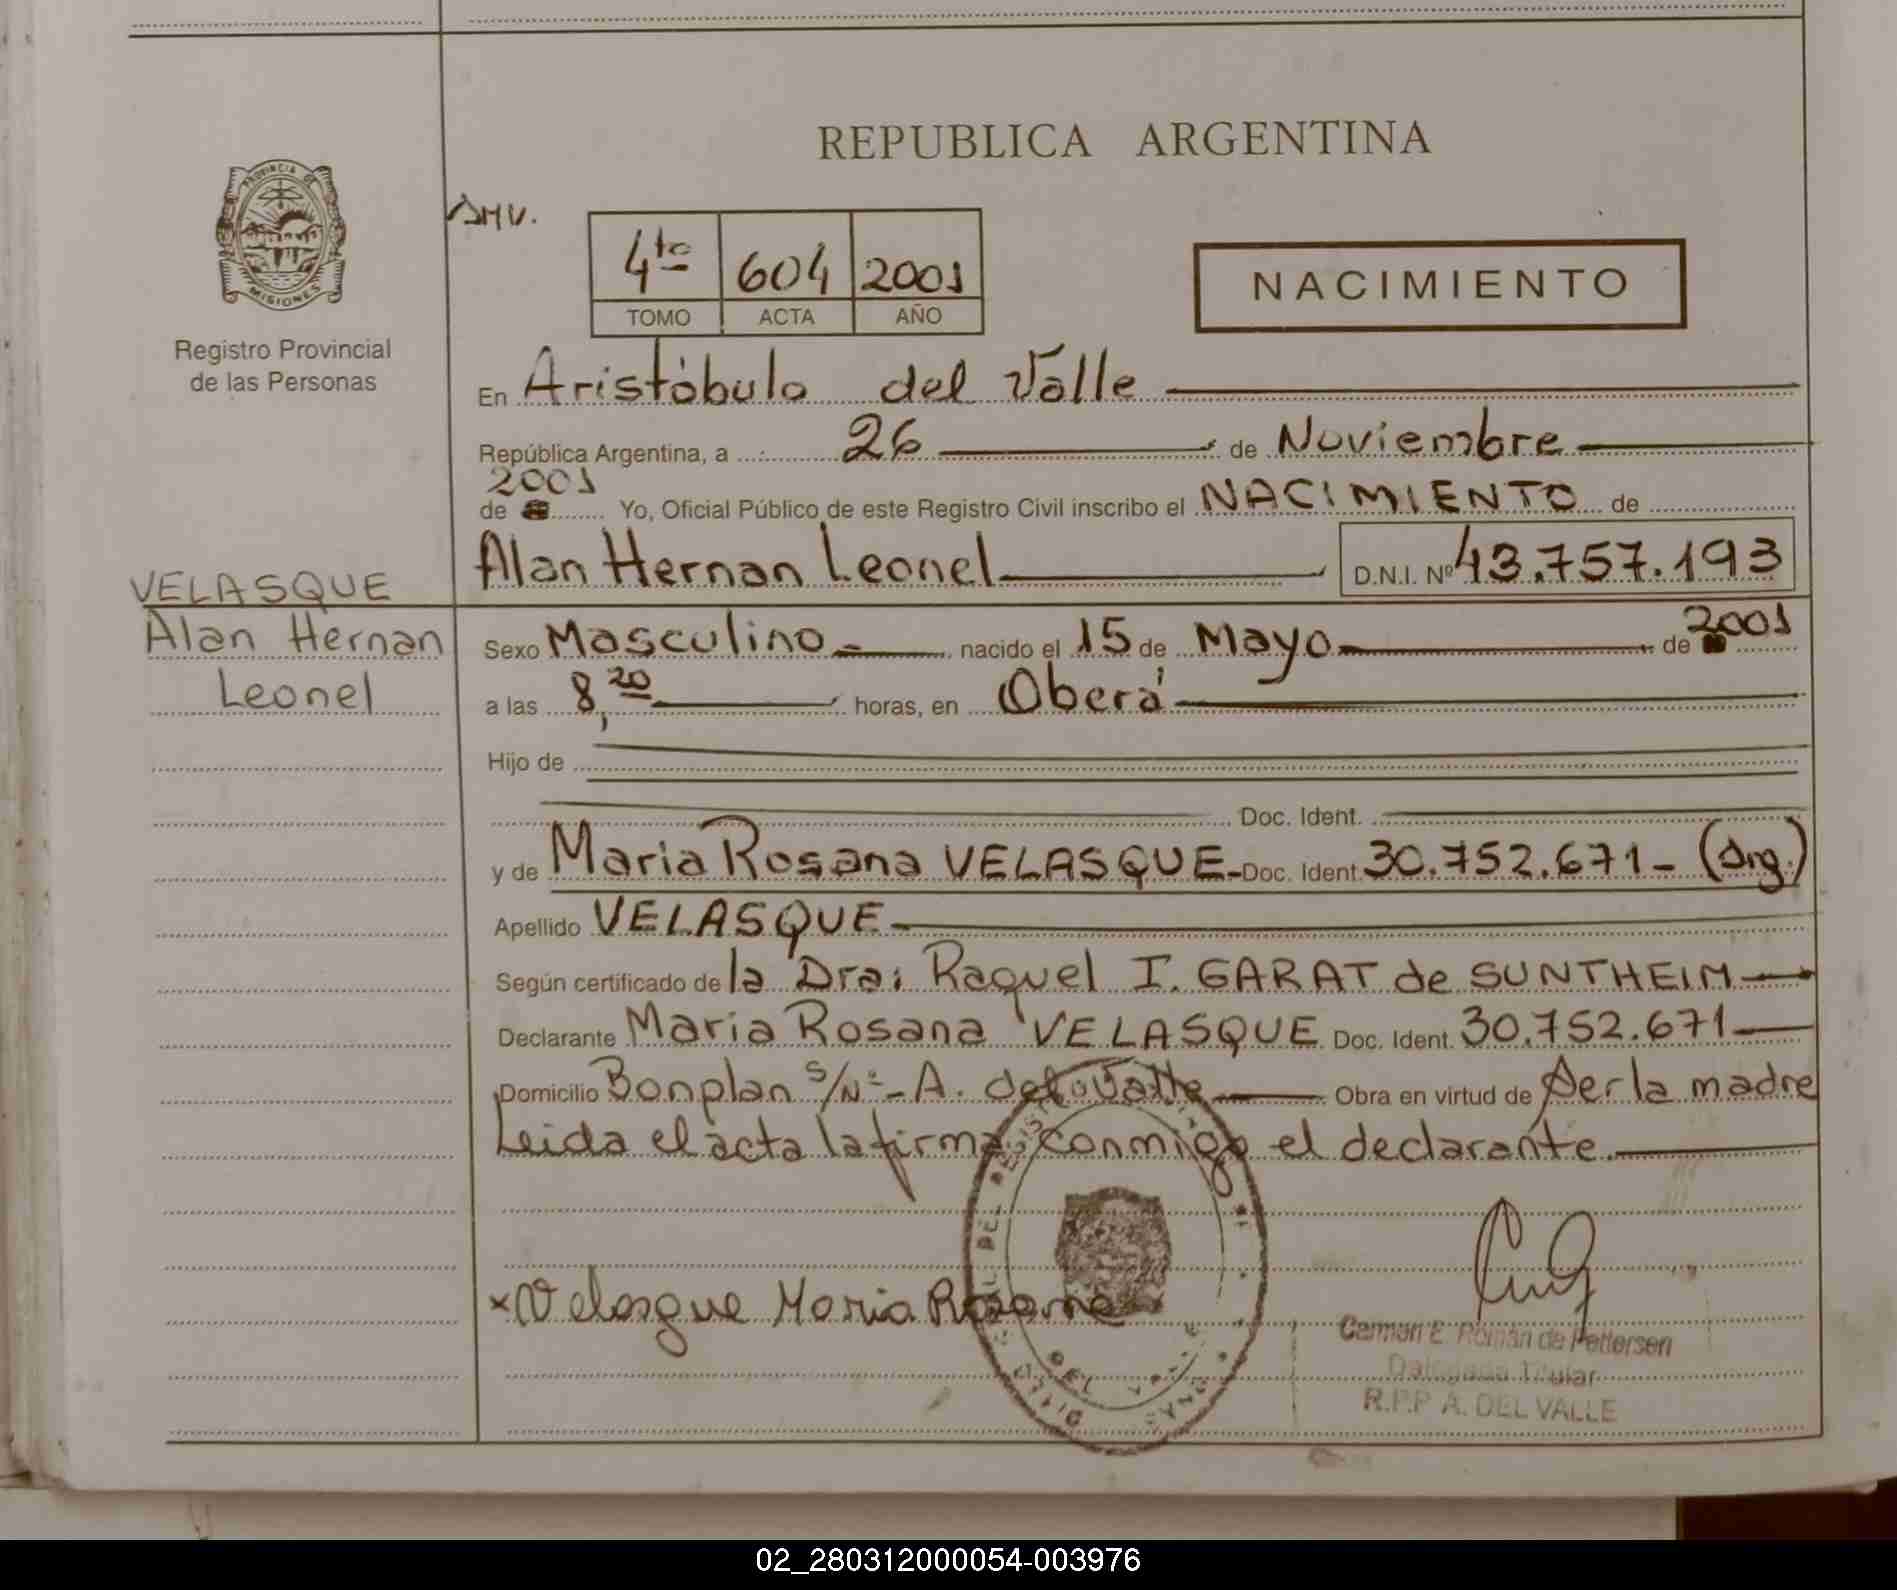 REPUBLICA ARGENTINA
PROVINCIA DE
MISIONES
Registro Provincial
de las Personas
4to 604 2001
TOMO ACTA AÑO
NACIMIENTO
En Aristóbulo del Valle
República Argentina, a 26 de Noviembre
2001
de Yo, Oficial Público de este Registro Civil inscribo el NACIMIENTO de
Alan Hernan Leonel D.N.I. Nº 43.757.193
VELASQUE
Alan Hernan
Leonel
Sexo Masculino nacido el 15 de Mayo de 2001
a las 8,20 horas, en Oberá
Hijo de
Doc. Ident.
y de Maria Rosana VELASQUE Doc. Ident. 30.752.671 - (Arg.)
Apellido VELASQUE
Según certificado de la Dra: Raquel I. GARAT de SUNTHEIM
Declarante Maria Rosana VELASQUE Doc. Ident. 30.752.671
Domicilio Bonplan S/Nº - A. del Valle Obra en virtud de ser la madre
Leida el acta la firma conmigo el declarante.
x Velasque Maria Rosana
Carmen E. Román de Pettersen
Delegada Titular
R.P.P A. DEL VALLE
02_280312000054-003976